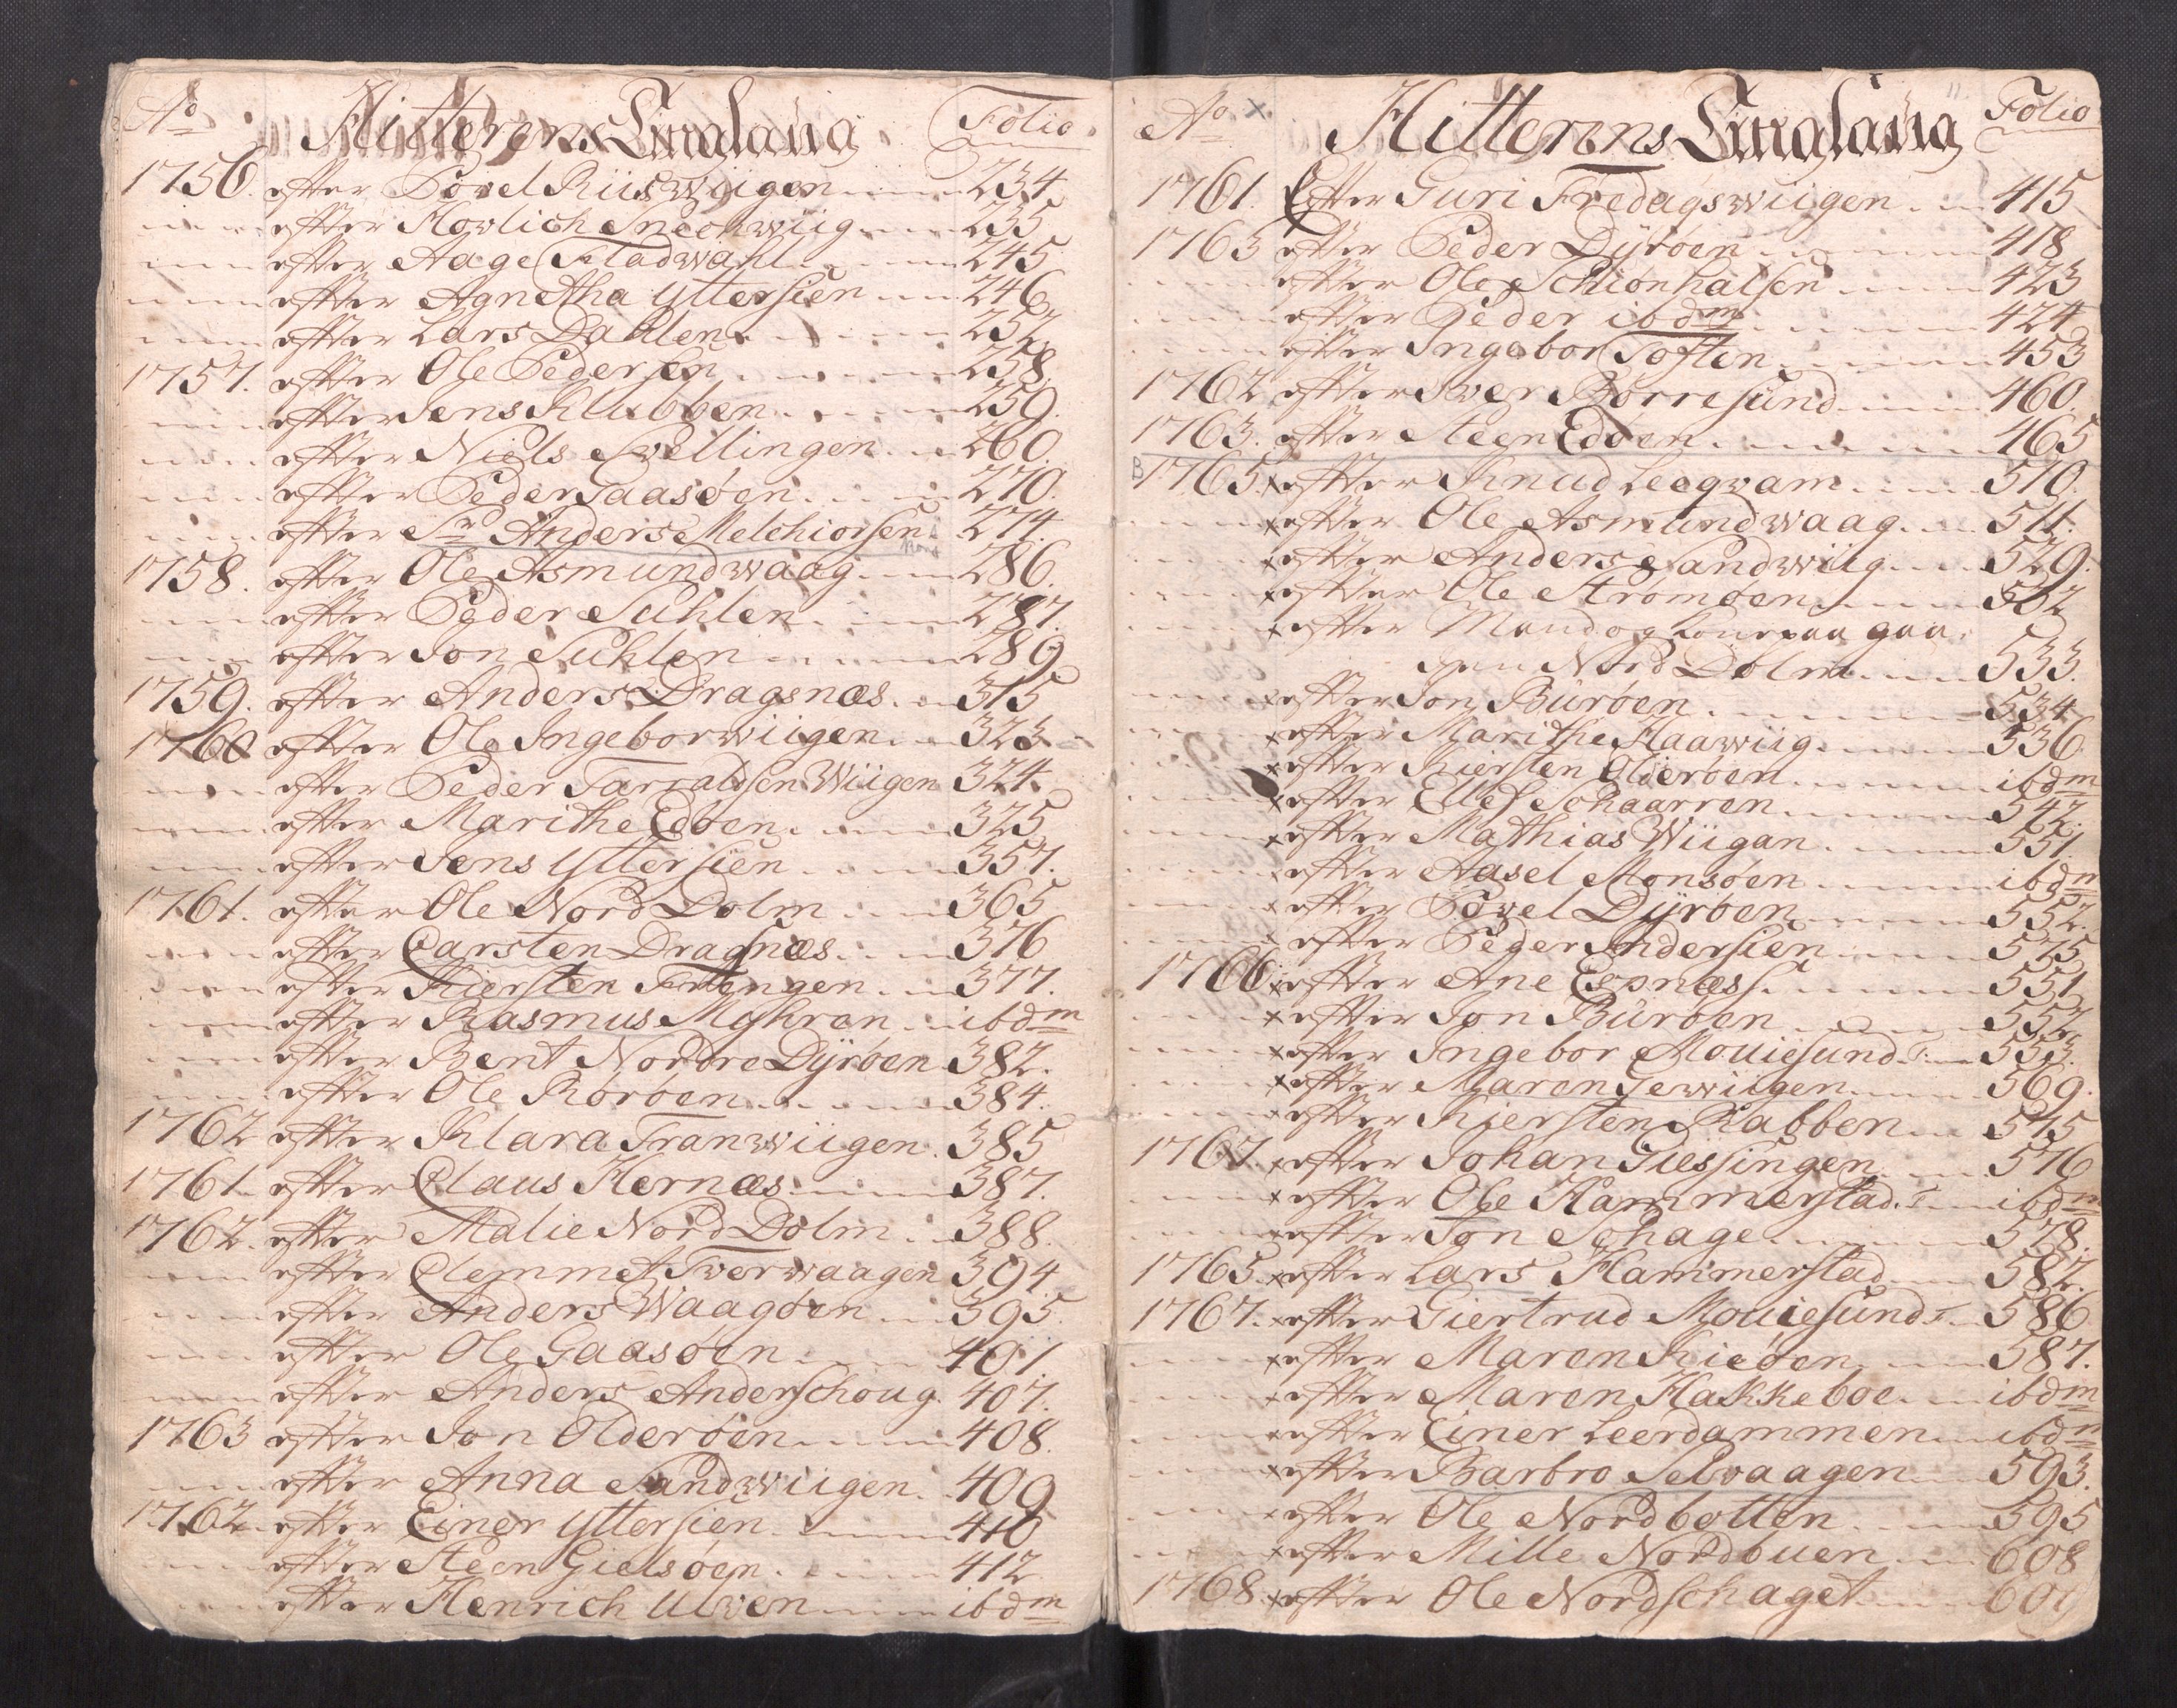 Ao Hitterens Tinglaug Folio
1756. efter Povel Riiswiigen 234
efter Hovlich Sneekwiig 235
efter Aage Stadwahl 245
efter Agnetha Yttersien 246
efter Lars Dahlen 252
1757. efter Ole Pedersen 258
efter Jens Klubben 259.
efter Niels Svellingen 260.
efter Peder Gaasøen 270.
efter Sr Anders Melchiorsen 274.
1758. efter Ole Asmundwaag 286.
efter Peder Suhlen 287.
efter Jon Suhlen 289
1759. efter Anders Dragsnæs 315
1760 efter Ole Ingeborwiigen 323
efter Peder Tarraldsen Wiigen 324.
efter Marithe Edøen 325
efter Jens Yttersien 357.
1761. efter Ole Nord Dolm 365
efter Carsten Dragsnæs 376
efter Kiersten Fillengen 377.
efter Rasmus Myhren ibdm
efter Bent Nordre Dÿrøen 382.
efter Ole Rørøen 384.
1762 efter Klara Tranwiigen 385
1761. efter Claus Hernæs 387.
1762. efter Malie Nord Dolm 388.
efter Clemmet Sverwaagen 394
efter Anders Waagøen 395.
efter Ole Gaasøen 401.
efter Anders Anderschoug. 407.
1763 efter Jon Olderøen 408.
efter Anna Sandwiigen. 409
1762 efter Einer Yttersien 410
efter Steen Gielsøen. 412
efter Henrich Ulven ibdm
Ao x Hitterens Tinglaug Folio
1761. Efter Guri Fredagswiigen 415
1763 efter Peder Dÿrøen 418
efter Ole Schionhalsen 423
efter Peder ibdm 424
efter Ingebor Toften 453
1762 efter Iver Borresund 460.
1763. efter Steen Edøen 465
B 1765. x efter Knud Leeqvam 510.
x efter Ole Asmundwaag 511.
x efter Anders Sandwiig 529.
x efter Ole Strømøen 532
x efter Mand og Kone paa gaa
den Nord Dolm 533.
x efter Jon Burøen 534
x efter Marithe Haawiig 536.
x efter Kiersten Olderøen ibdm
x efter Ellef Schaarren 542.
x efter Mathias Wiigan 551.
x efter Aasel Monsøen ibdm
x efter Povel Dÿrøen 552.
x efter Peder Andersien 575
1766 x efter Ane Espnæss 551
x efter Jon Burøen 552.
x efter Ingebor Mouiesund T. 553.
x efter Maren Gewiigen 569.
x efter Kiersten Rabben 575
1767. x efter Johan Giessingen 576
x efter Ole Hammerstad. T ibdm
efter Jon Schage 578.
1765. x efter Lars Hammerstad 582.
1767. x efter Giertrud Mouiesund T 586
x efter Maren Kiøen 587.
x efter Maren Hakkeboe ibdm
x efter Einer Leerdammen ibdm
x efter Barbro Selvaagen 593.
x efter Ole Nordbotten 595
x efter Mille Nordbuen 608
1768 x efter Ole Nordschaget 609